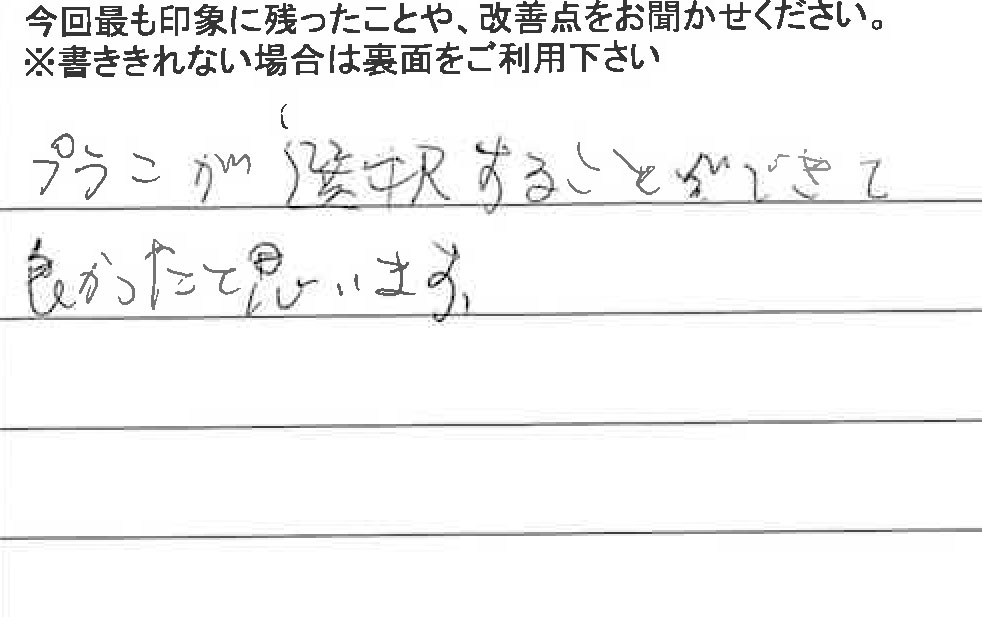 今回最も印象に残ったことや、改善点をお聞かせください。
※書ききれない場合は裏面をご利用下さい
プランが選択することができて
良かったと思います。